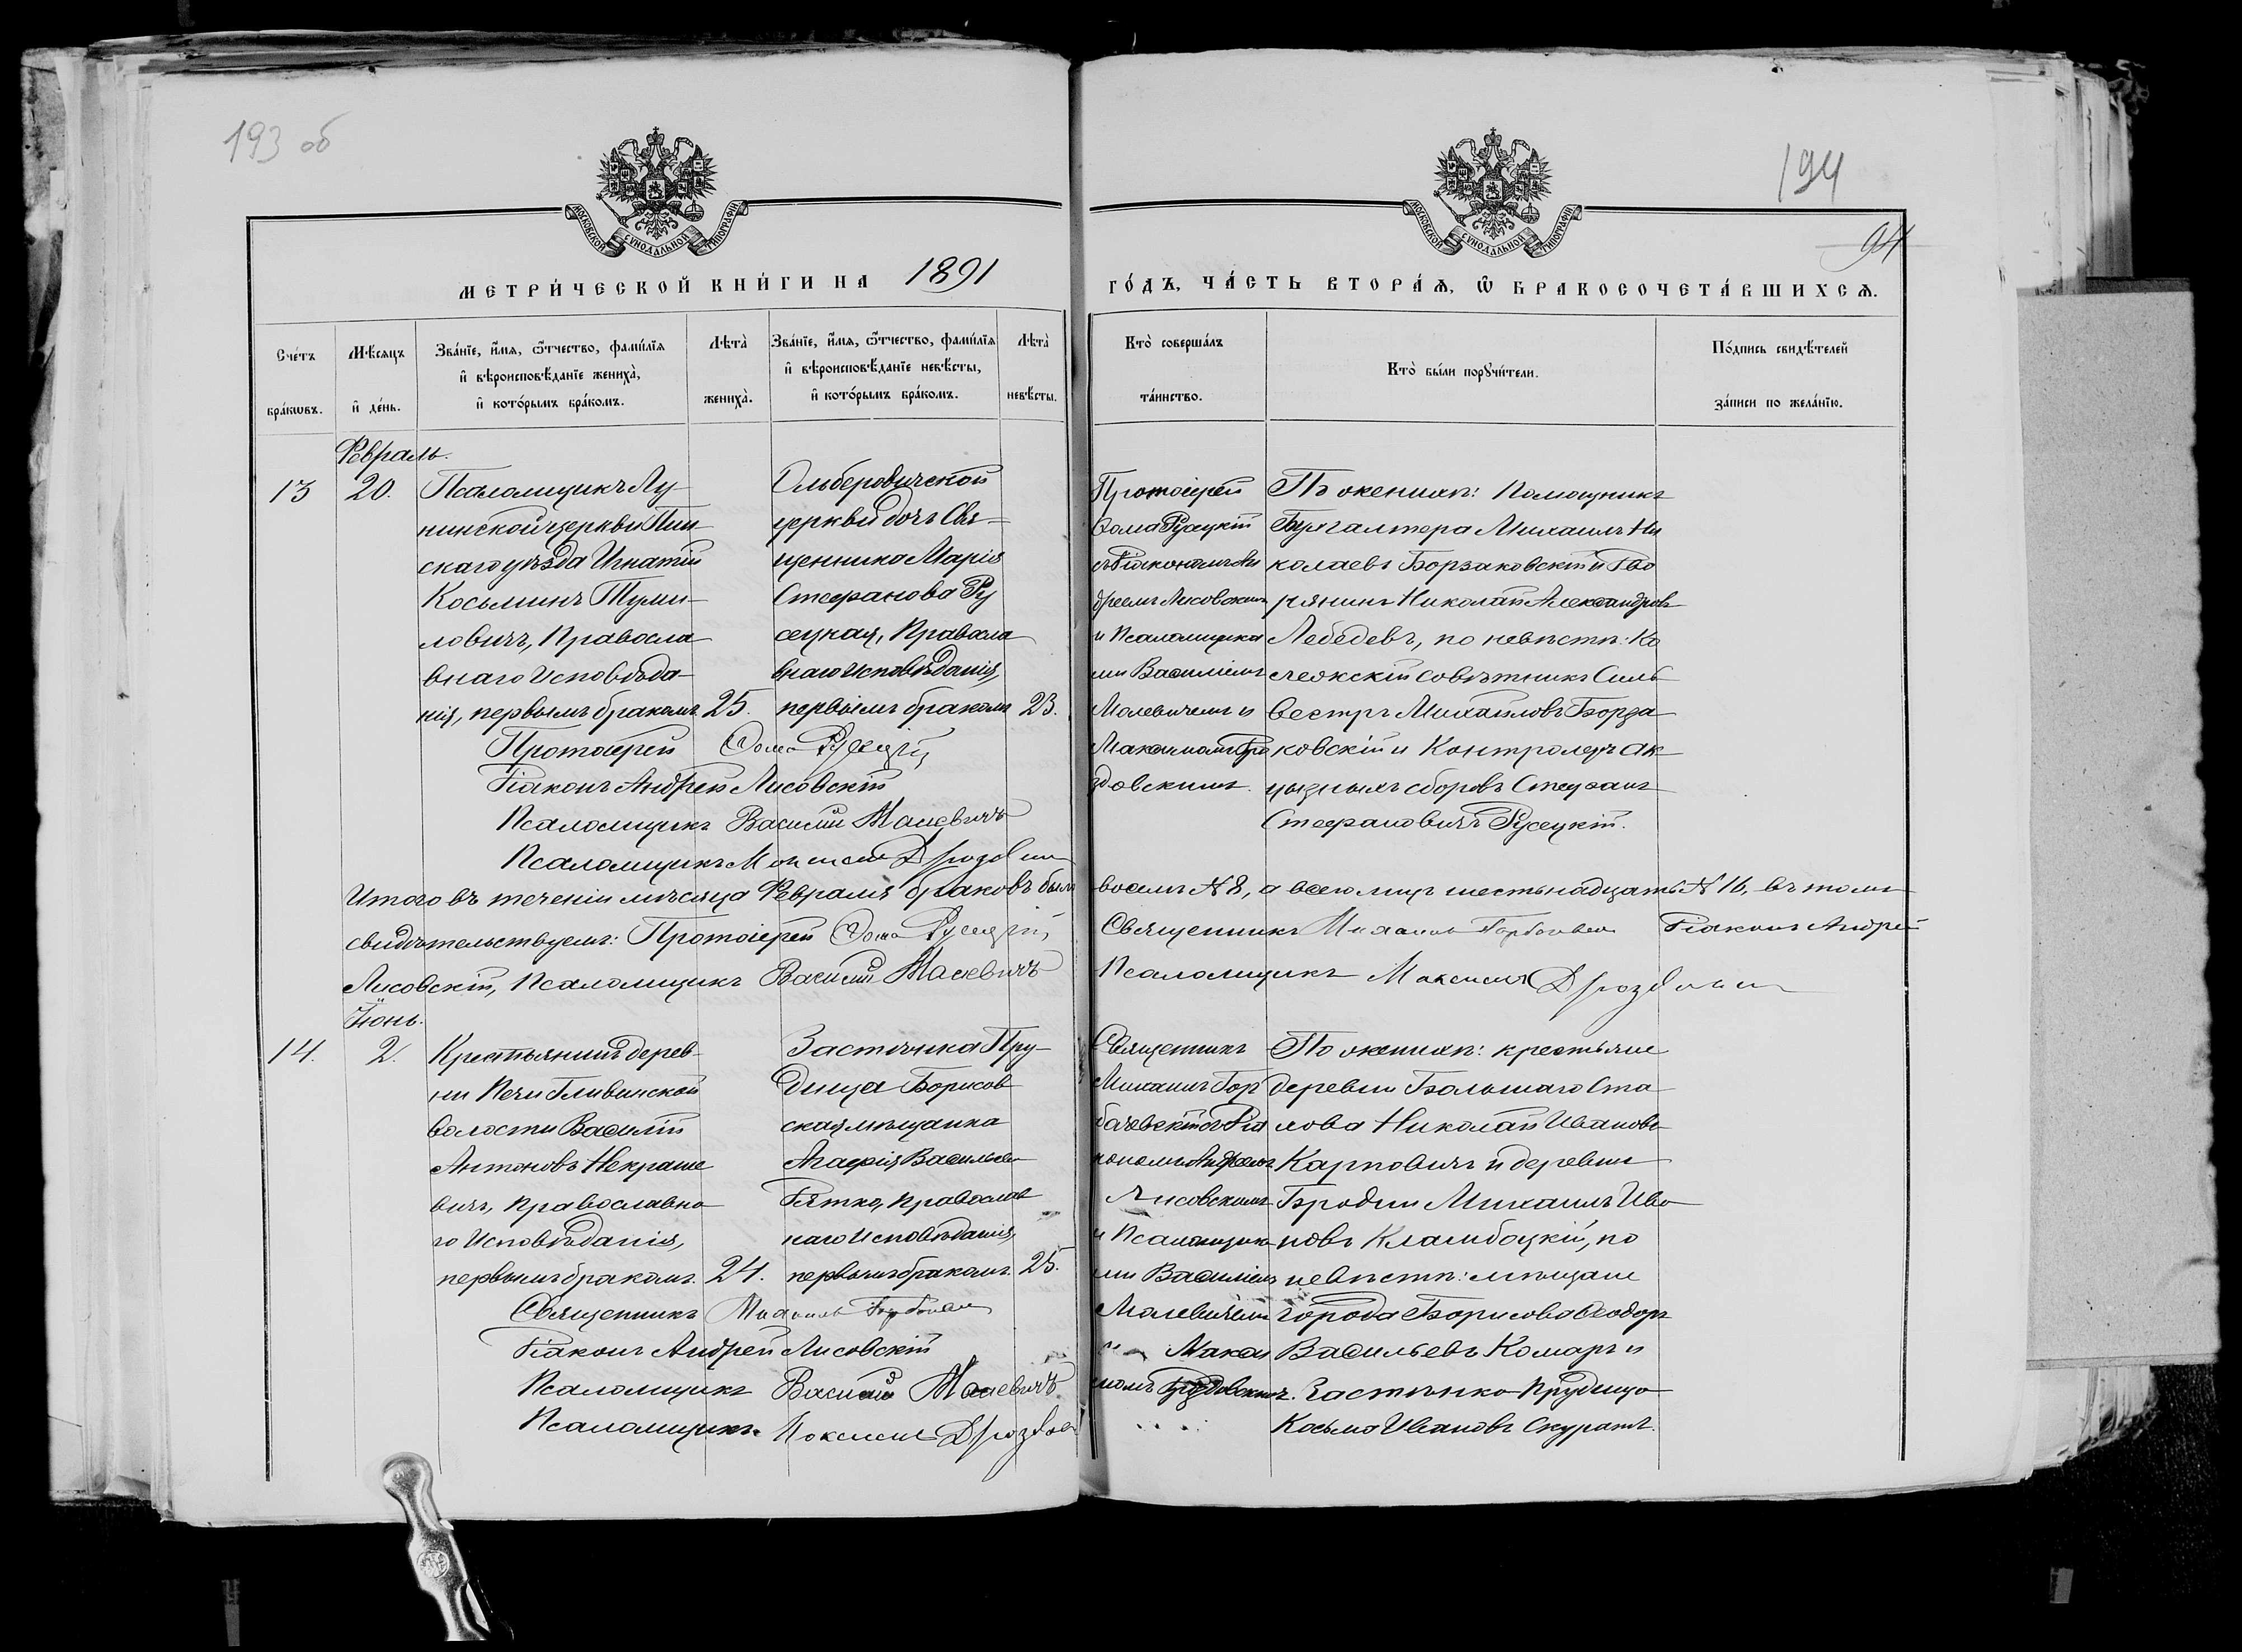 193 об
194
94
МОСКОВСКОЙ СѴНОДАЛЬНОЙ ТИПОГРАФІИ
МОСКОВСКОЙ СѴНОДАЛЬНОЙ ТИПОГРАФІИ
МЕТРИ́ЧЕСКОЙ КНИ́ГИ НА 1891
ГО́ДЪ, ЧА́СТЬ ВТОРА́Ѧ, Ѿ БРАКОСОЧЕТА́ВШИХСѦ.
Сче́тъ бра́кѡвъ.
Мѣсяцъ и҆ де́нь.
Зва́нїе, и҆́мя, ѻ҆́тчество, фамѝлїя и҆ вѣроисповѣ́данїе жениха̀, и҆ кото́рымъ бра́комъ.
Лѣта̀ жениха̀.
Зва́нїе, и҆́мя, ѻ҆́тчество, фамѝлїя и҆ вѣроисповѣ́данїе невѣ́сты, и҆ кото́рымъ бра́комъ.
Лѣта̀ невѣ́сты.
Кто̀ соверша́лъ та́инство.
Кто̀ бы́ли порꙋчи́тели.
По́дпись свидѣ́телей за́писи по жела́нїю.
Февраль.
13
20.
Псаломщикъ Лу-
нинской церкви Пин-
скаго уѣзда Игнатій
Косьминъ Туми-
ловичъ, Правосла
внаго Исповѣда-
нія, первымъ бракомъ.
25.
Ольберовической
церкви дочь Свя-
щенника Марія
Стефанова Ру
сецкая, Правосла
внаго Исповѣданія,
первымъ бракомъ
23.
Протоіерей
Ѳома Русецкій
съ Діакономъ Ан
дреемъ Лисовскимъ
и Псаломщика
ми Василіемъ
Малевичемъ и
Максимомъ Дро
здовскимъ.
По женихѣ: Помощникъ
Бухгалтера Михаилъ Ни
колаевъ Борзаковскій и Дво
рянинъ Николай Александровъ
Лебедевъ, по невѣстѣ: Ко
лежскій совѣтникъ Силь
вестръ Михайловъ Борза
ковскій и Контролеръ ак
цызныхъ сборовъ Стефанъ
Стефановичъ Русецкій.
Протоіерей Ѳома Русецкій
Діаконъ Андрей Лисовскій
Псаломщикъ Василій Малевичъ
Псаломщикъ Максимъ
Итого въ теченіи мѣсяца Февраля браковъ было восемь № 8, а всего лицъ шестьнадцать № 16, въ томъ
свидѣтельствуемъ: Протоіерей Ѳома Русецкій, Священникъ Михаилъ Діаконъ Андрей
Лисовскій, Псаломщикъ Василій Малевичъ Псаломщикъ Максимъ
Іюнь.
14.
2.
Крестьянинъ дерев-
ни Печи Гливинской
волости Василій
Антоновъ Некраше
вичъ, Православна
го Исповѣданія,
первымъ бракомъ.
24.
Застѣнка Пру-
дища Борисов
ская мѣщанка
Агафія Васильева
Гятко, Православ
наго Исповѣданія,
первымъ бракомъ.
25.
Священникъ
Михаилъ Гор
бачевскій съ Діа
кономъ Андреемъ
Лисовскимъ
и Псаломщика
ми Василіемъ
Малевичемъ
и Макси
момъ Дроздовскимъ.
По женихѣ: крестьяне
деревни Большаго Ста
хова Николай Ивановъ
Карповичъ и деревни
Бродни Михаилъ Ива
новъ Кламбоцкій, по
невѣстѣ: мѣщане
города Борисова Ѳеодоръ
Васильевъ Комаръ и
Застѣнка Прудища
Косьма Ивановъ Скуратъ.
Священникъ Михаилъ
Діаконъ Андрей Лисовскій
Псаломщикъ Василій Малевичъ
Псаломщикъ Максимъ